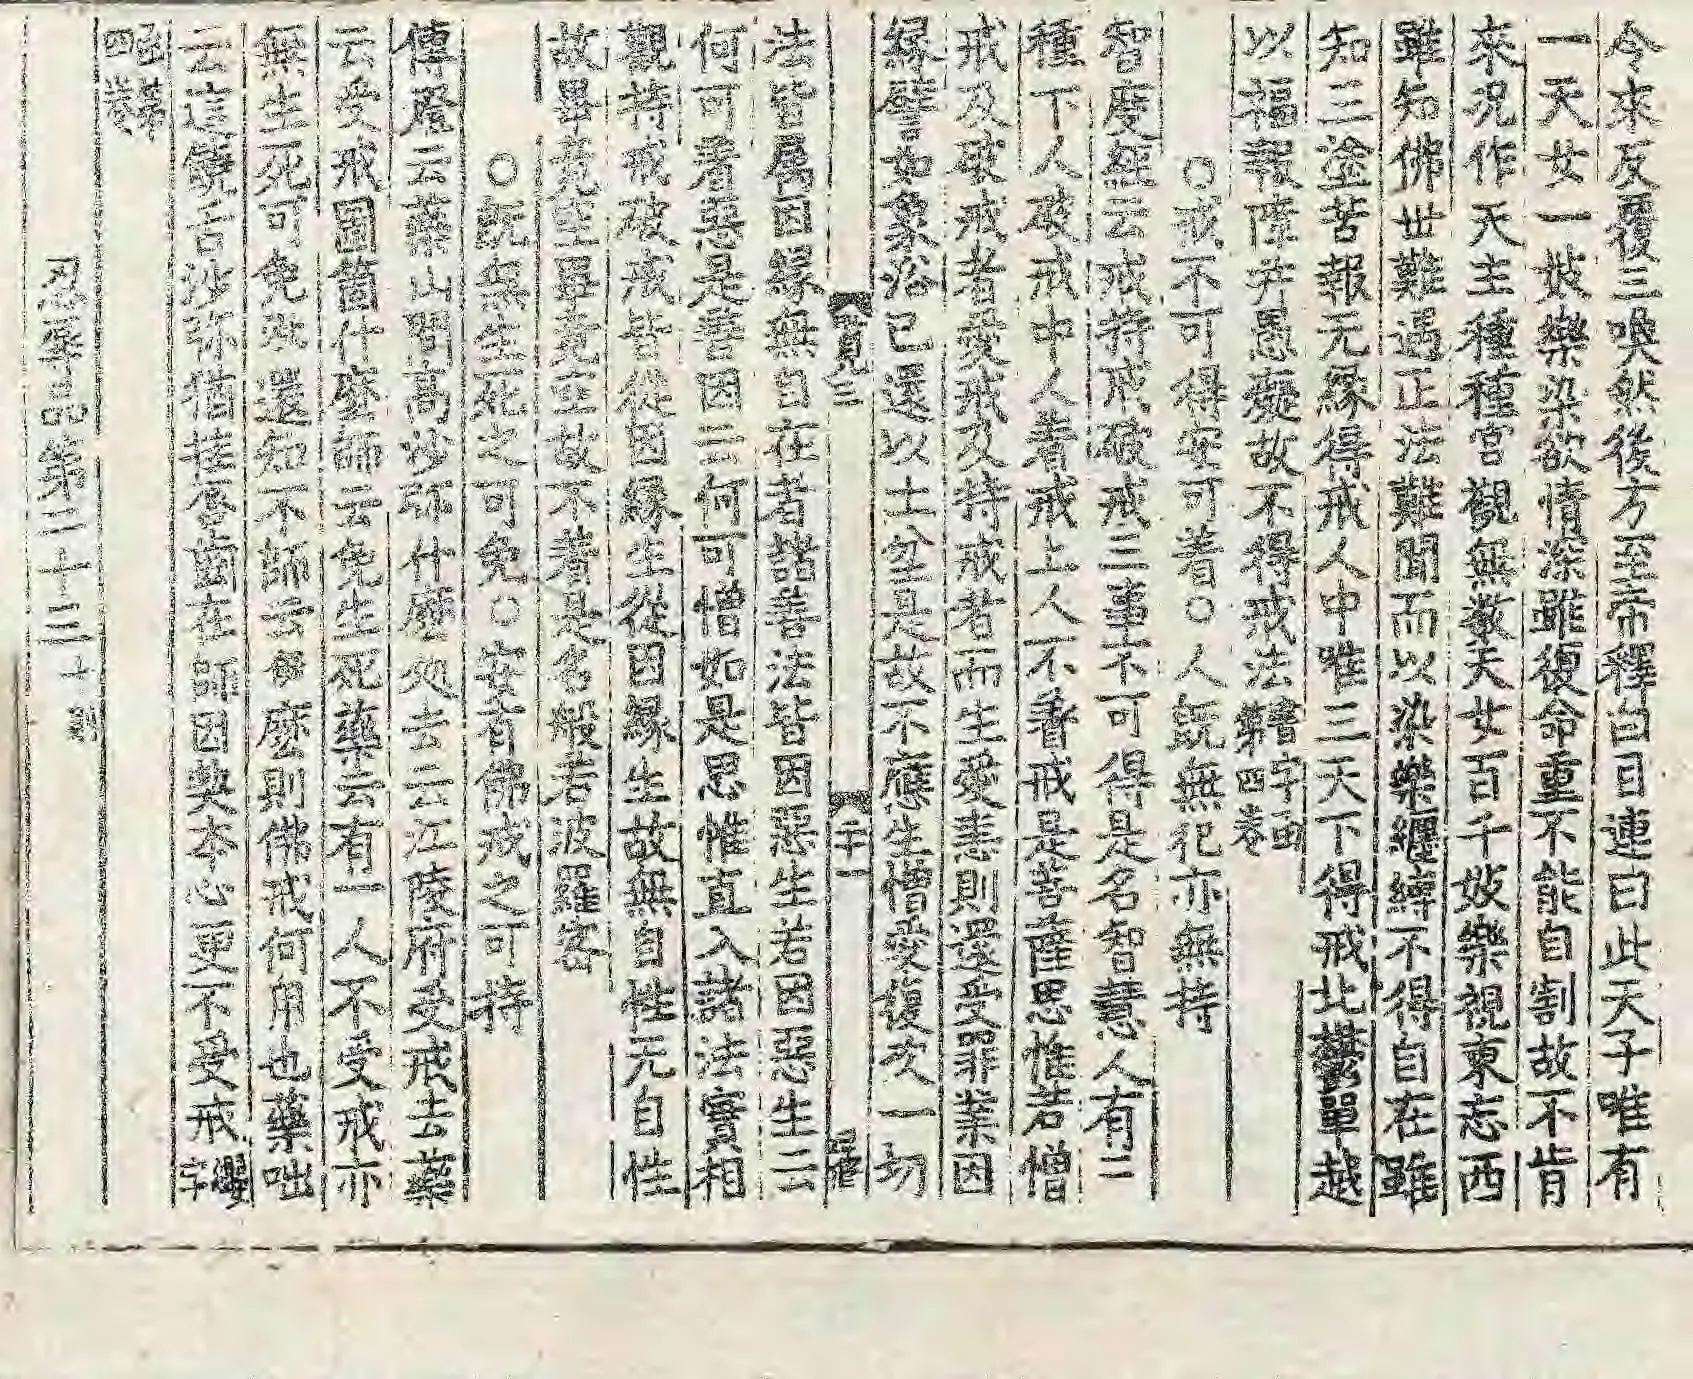 今來反覆三喚然後方至帝釋白目連曰此天子唯有
一天女一妓樂染欲情深雖復命重不能自割故不肯
來況作天主種種宮觀無數天女百千妓樂視東忘西
雖知佛世難遇正法難聞而以染樂纏縛不得自在雖
知三塗苦報无緣得戒人中唯三天下得戒北欝單越
以福報障幷愚癡故不得戒法韓字函四卷
○戒不可得安可着○人旣無犯亦無持
智度經云戒持戒破戒三事不可得是名智慧人有二
種下人破戒中人着戒上人不着戒是菩薩思惟若憎
戒及破戒者愛戒及持戒者而生愛恚則還受罪業因
緣譬如象浴已還以土坌是故不應生憎愛復次一切
寶三
二十一
法皆屬因緣無自在者諸善法皆因惡生若因惡生云
何可着惡是善因云何可憎如是思惟直入諸法實相
觀持戒破戒皆從因緣生從因緣生故無自性无自性
故畢竟空畢竟空故不着是名般若波羅蜜
○旣無生死之可免○安有佛戒之可持
傳燈云藥山問高沙弥什麽処去云江陵府受戒去藥
云受戒圖箇什麽師云免生死藥云有一人不受戒亦
無生死可免汝還知不師云伊麽則佛戒何用也藥咄
云這饒舌沙弥猶挂唇齒在師因契本心更不受戒纓字
函第四卷
忍辱品第二十三